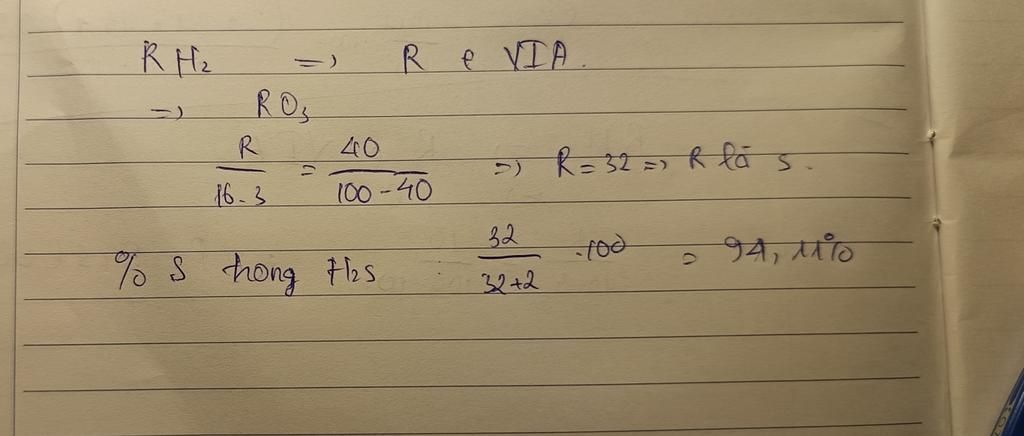 RH₂ => R e VIA.
=> RO₃
R/16.3 = 40/100-40 => R=32 => R là S.
% S trong H₂S : 32/32+2 .100 = 94,11%